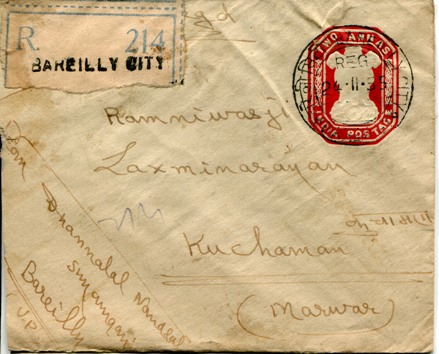 R 214
BAREILLY CITY
TWO ANNAS
REG
24·11·5
INDIA POSTAGE
Ramniwasji
Laxminarayan
Kuchaman
(Marwar)
Dhannalal Nandlal
Bareilly
UP